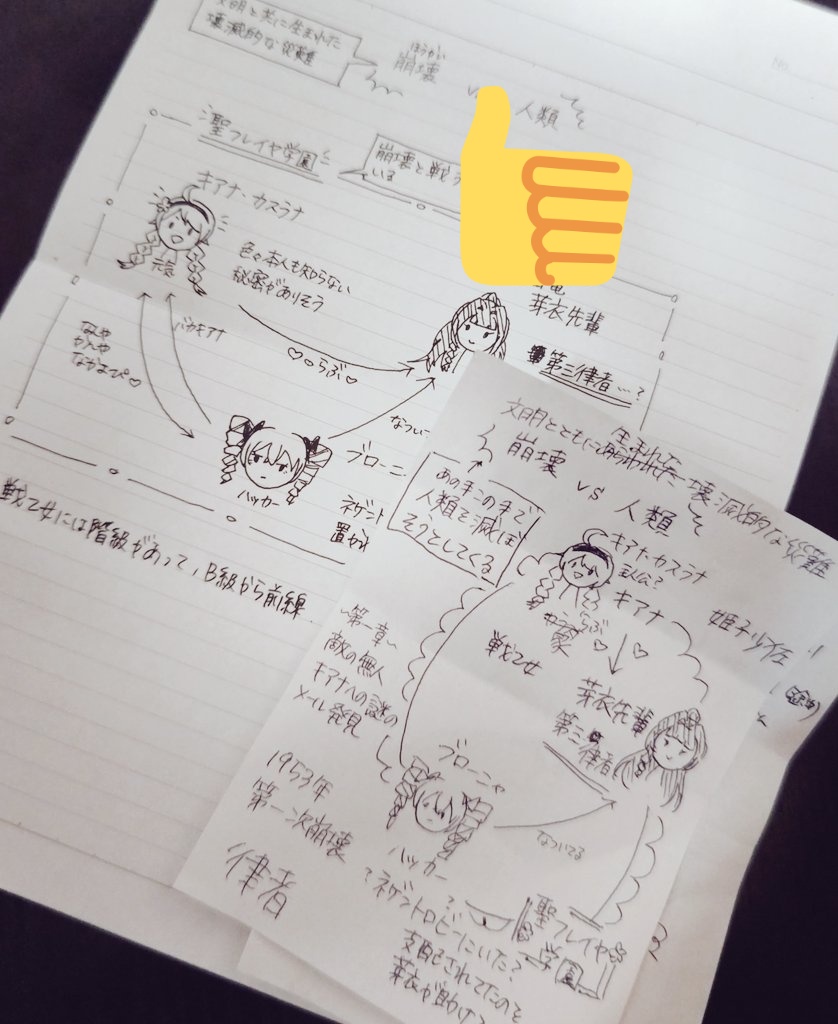 文明と共に生まれた
壊滅的な災難
ほうかい
崩壊
人類
聖フレイヤ学園
崩壊と戦う
いる
キアナ・カスラナ
色々本人も知らない
秘密がありそう
芽衣先輩
第三律者…?
♡らぶ♡
バカキアナ
なんや
かんや
なかよぴ♡
なつい
ブローニ
ハッカー
ネゲント
置か
戦乙女には階級があって、B級から前線
文明とともに生まれた壊滅的な災難
崩壊 vs 人類
あの手この手で
人類を滅ぼ
そうとしてくる
キアナ・カスラナ
主人公?
キアナ
らぶ
姫子少佐
戦乙女
芽衣先輩
第三律者
~第一章~
敵の無人
キアナへの謎の
メール発見
ブローニャ
ハッカー
なついてる
1953年
第一次崩壊
律者
ネゲントロピーにいた?
支配されてたのを
芽衣が助け
聖フレイヤ
学園